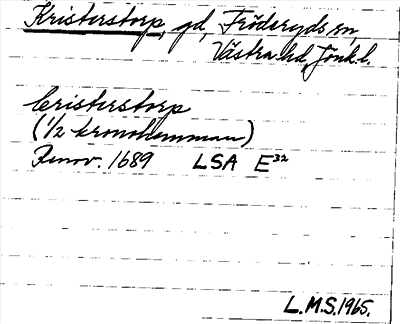 Kristerstorp, gd, Fröderyds sn,
Västra hd, Jönk. l.
Cristerstorp
(1/2 kronohemman)
Renov. 1689 LSA E³²
L.M.S. 1965.